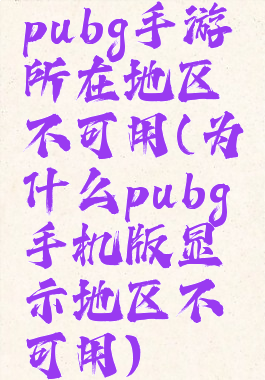 pubg手游
所在地区
不可用(为
什么pubg
手机版显
示地区不
可用)